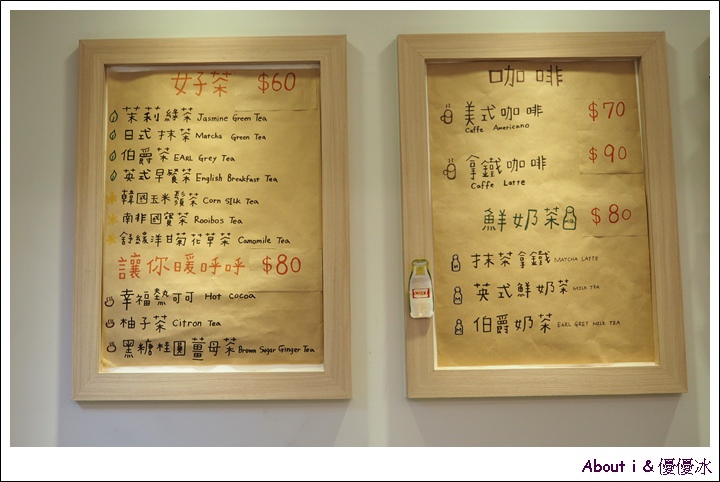 好茶 $60
茉莉綠茶 Jasmine Green Tea
日式抹茶 Matcha Green Tea
伯爵茶 EARL Grey Tea
英式早餐茶 English Breakfast Tea
韓國玉米鬚茶 Corn Silk Tea
南非國寶茶 Rooibos Tea
舒緩洋甘菊花草茶 Camomile Tea
讓你暖呼呼 $80
幸福熱可可 Hot Cocoa
柚子茶 Citron Tea
黑糖桂圓薑母茶 Brown Sugar Ginger Tea
咖啡
美式咖啡 $70
Caffe Americano
拿鐵咖啡 $90
Caffe Latte
鮮奶茶 $80
抹茶拿鐵 MATCHA LATTE
英式鮮奶茶 MILK TEA
伯爵奶茶 EARL GREY MILK TEA
About i & 優優冰